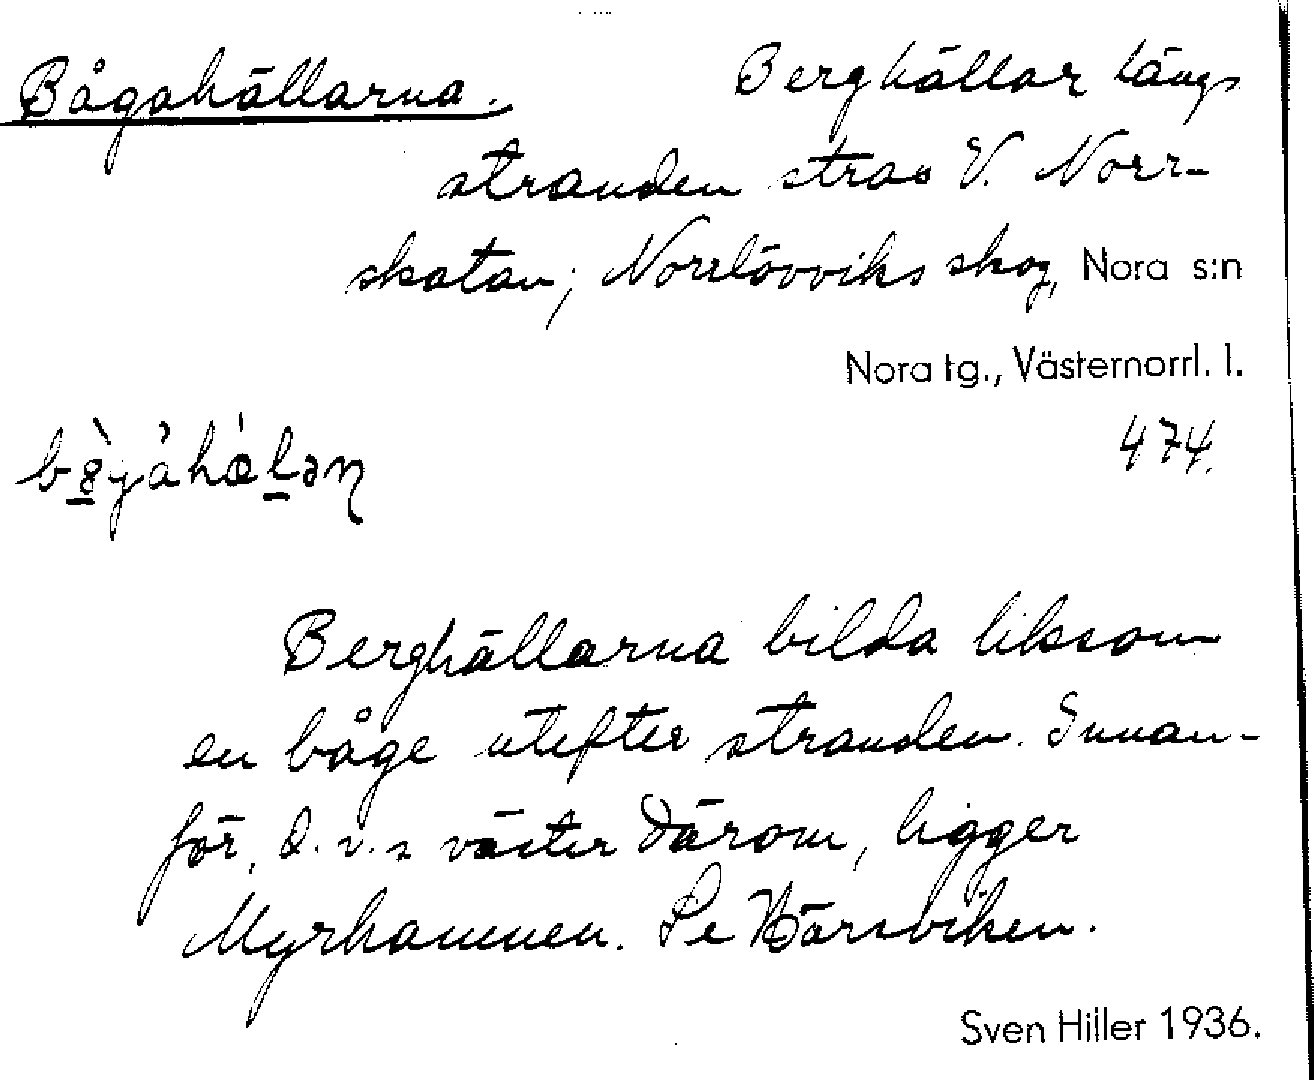 Bågahällarna. Berghällar längs
stranden strax V. Norr-
skatan; Norrlövviks skog, Nora s:n
Nora tg., Västernorrl. l.
474.
Berghällarna bilda liksom
en båge utefter stranden. Innan-
för, d.v.s väster därom, ligger
Myrhamnen. Se
Sven Hiller 1936.